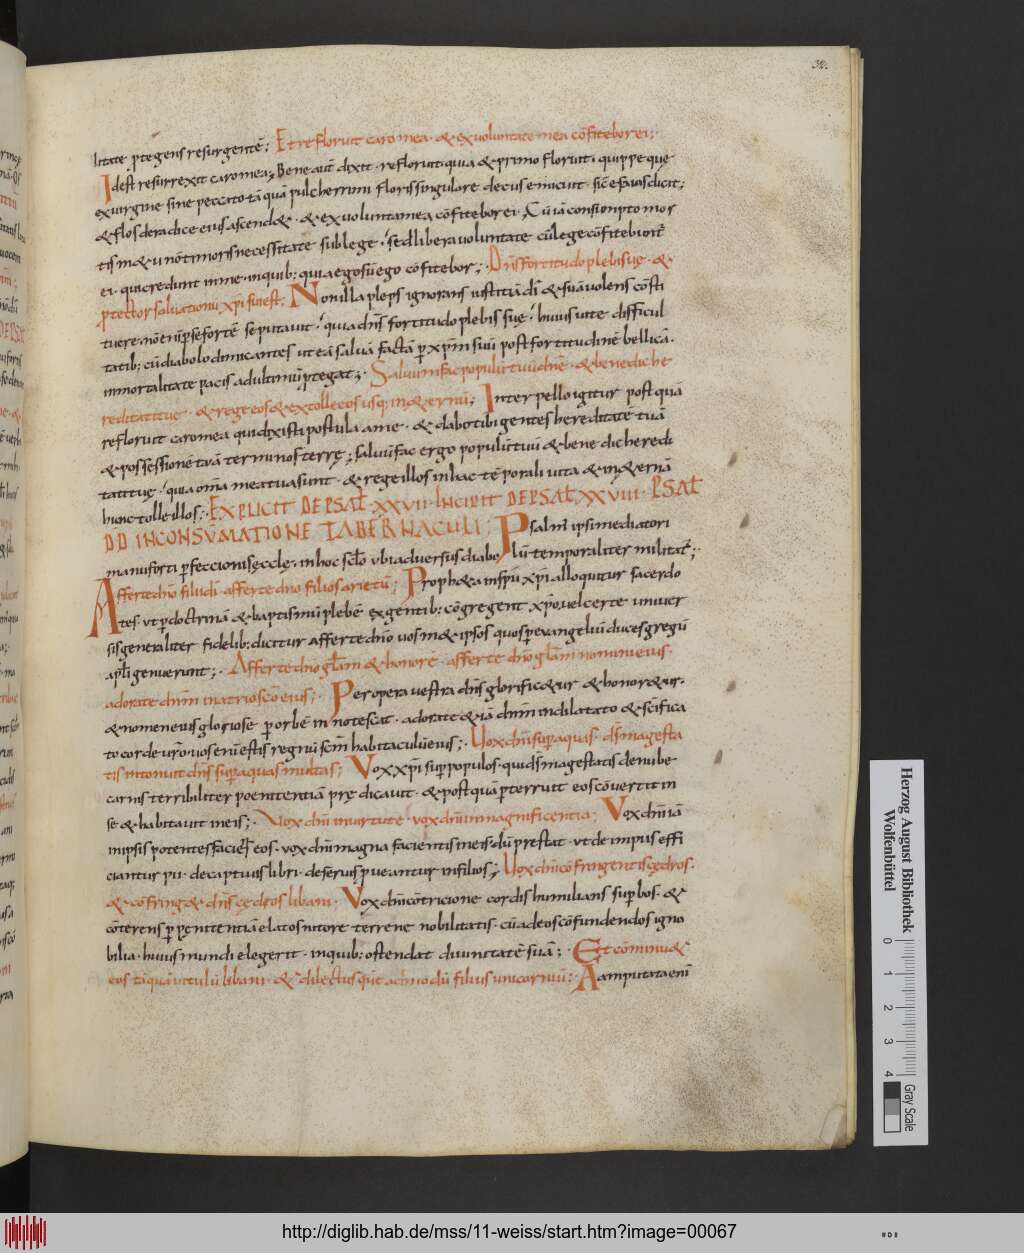 32.
litate ptegens resurgentē; Et refloruit caro mea · & ex uoluntate mea cōfitebor ei;·
Idest resurrexit caro mea; Bene autē dixit · refloruit · quia & primo floruit · quippe quę
ex uirgine sine peccato · tā quā pulcherrimi floris singulare decus emicuit · sic esaias dicit;
& flos de radice eius ascend& · & ex uolunta mea cōfitebor ei · Cū iā consumpto mor
tis m&u nō timoris necessitate sub lege · sed libera uoluntate cū lege cōfitebunt̄
ei · qui credunt in me · inquib: quia ego sū ego cōfitebor;· Dn̄s fortitudo plebis suę · &
ptector saluationū xp̄i sui est; Non illa pleps ignorans iustitiā dī & suā uolens cōsti
tuere · nō enī p se fortē se putauit · quia dn̄s fortitudo plebis suę · huius uitę difficul
tatib: cū diabolo dimicantes ut eā saluā factā p xp̄m suū post fortitudinē bellicā ·
immortalitate pacis ad ultimū ptegat;· Saluum fac populū tuū dn̄e · & benedic he
reditati tuę · & rege eos & extolle eos usq; in &ernū; Interpello igitur post quā
refloruit caro mea qui dixisti postula a me · & dabo tibi gentes hereditatē tuā
& possessionē tuā terminos terrę; saluū fac ergo populū tuū & benedic heredi
tati tuę · quia om̄a mea tua sunt · & rege illos in hac tēporali uita & in &ernā
hunc tolle illos;· EXPLICIT DE PSAL̄ · XXVII · INCIPIT DE PSAL̄ XXVIII · PSAL̄
DD IN CONSŪMATIONE TABERNACULI; Psalm̄ ipsi mediatori
manu forti pfeccionis ęcclę · in hoc scl̄o ubi aduersus diabo lū temporaliter militat̄;·
Afferte dn̄o filii dī · afferte dn̄o filios arietū; Proph&a in spū xp̄i alloquitur sacerdo
tes · ut p doctrinā & baptismū plebē ex gentib: cōgregent xp̄o, uel certe uniuer
sis generaliter fidelib: dicitur afferte dn̄o uos m&ipsos quos p euangeliū duces gregū
apl̄i genuerunt;· Afferte dn̄o gl̄am & honorē · afferte dn̄o gl̄am nomini eius ·
adorate dn̄m in atrio scō eius;· Per opera uestra dn̄s glorific&ur & honor&ur ·
& nomen eius gloriose p orbē innotescat · adorate & iā dn̄m in dilatato & scīfica
to corde ur̄o · uos enī estis regnū scm̄ habitaculū eius;· Vox dn̄i sup aquas · ds̄ magesta
tis intonuit dn̄s sup aquas multas; Vox xp̄i sup populos · qui ds̄ magestatis de nube
carnis terribiliter poenitentiā prędicauit · & post quā pterruit eos cōuertit in
se & habitauit in eis;· Vox dn̄i in uirtute · vox dn̄i in magnificentia; Vox dn̄i iā
in ipsis potentes faciens eos · vox dn̄i magna facientis in eis · dū prestat · ut de impiis effi
ciantur pii · de captiuis libri · de seruis pueantur in filios; Vox dn̄i cōfringentis cędros ·
& cōfring& dn̄s cedros libani · Vox dn̄i cōtricione cordis humilians supbos · &
cōterens p pęnitentiā elatos nitore terrenę nobilitatis · cū ad eos cōfundendos igno
bilia · huius mundi elegerit · inquib: ostendat diuinitatē suā;· Et cōminu&
eos tā quā uitulū libani · & dilectus que admodū filius unicornuū;· Aamputata enī
Herzog August Bibliothek
Wolfenbüttel
0 1 2 3 4
Gray Scale
http://diglib.hab.de/mss/11-weiss/start.htm?image=00067